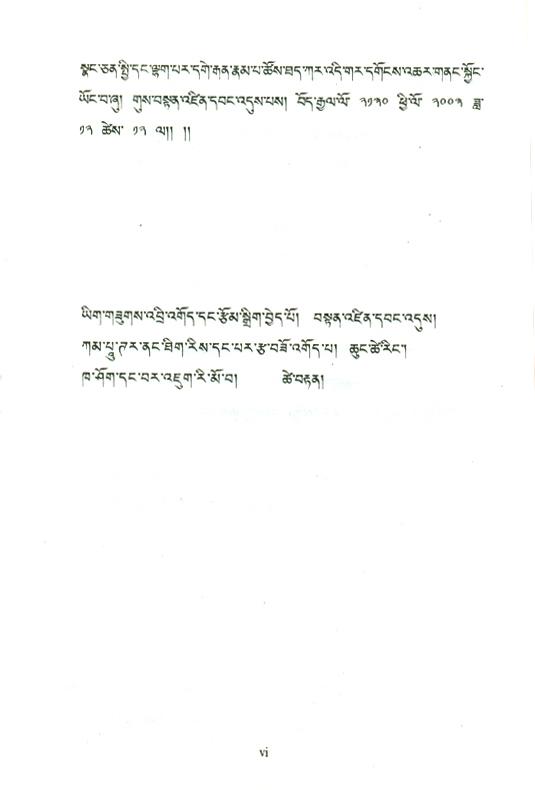 སྣང་ཅན་སྤྱི་དང་ལྷག་པར་དགེ་རྒན་རྣམ་པ་ཚོས་ཐད་ཀར་འདི་གར་དགོངས་འཆར་གནང་སྐྱོང་
ཡོང་བ་ཞུ། གུས་བསྟན་འཛིན་དབང་འདུས་པས། བོད་རྒྱལ་ལོ་ ༢༡༣༠ ཕྱི་ལོ་ ༢༠༠༣ ཟླ་
༡༢ ཚེས་ ༡༢ ལ།། །།
ཡིག་གཟུགས་འབྲི་འགོད་དང་རྩོམ་སྒྲིག་བྱེད་པོ། བསྟན་འཛིན་དབང་འདུས།
ཀམ་པྱུ་ཊར་ནང་ཐིག་རིས་དང་པར་རྩ་བཟོ་འགོད་པ། ཆུང་ཚེ་རིང་།
ཁ་ཤོག་དང་བར་འཇུག་རི་མོ་བ། ཚེ་བརྟན།
vi